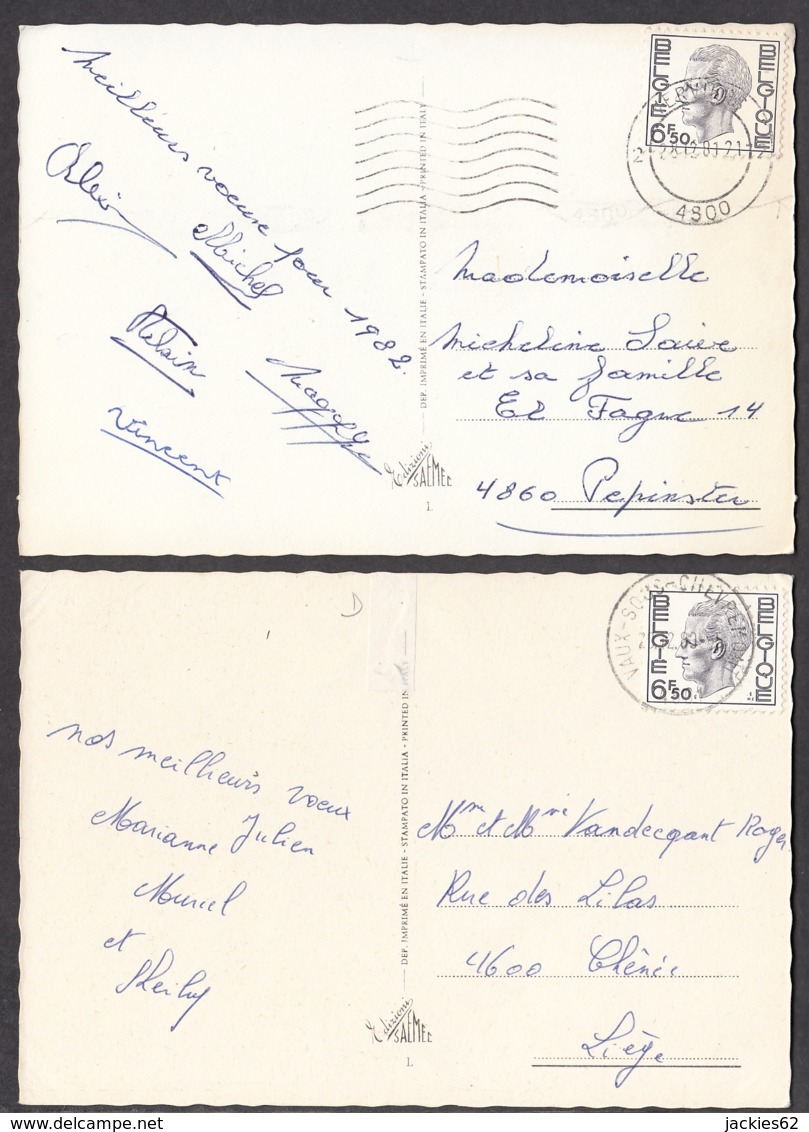 Meilleurs voeux pour 1982.
Michel
Alain
Vincent
DEP. IMPRIMÉ EN ITALIE - STAMPATO IN ITALIA - PRINTED IN ITALY
Edizioni
SAEMEC
L
BELGIE
BELGIQUE
6F50
28.12.81 21
4800
Mademoiselle
Micheline
et sa famille
Er Fagne 14
4860 Pepinster
D
nos meilleurs voeux
Marianne Julien
Muriel
et
DEP. IMPRIMÉ EN ITALIE - STAMPATO IN ITALIA - PRINTED IN
Edizioni
SAEMEC
L
BELGIE
BELGIQUE
6F50
VAUX-SOUS-CHEVREMONT
Mr et Mme Vandecqant Roger
Rue des Lilas
4600 Chênée
Liège
jackies62